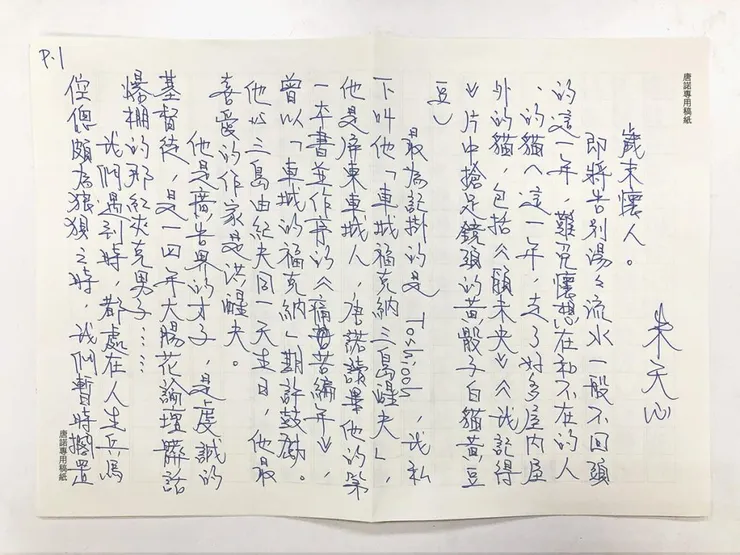 唐諾專用稿紙
歲末懷人。 朱天心
即將告別湯々流水一般不回頭
的這一年,難免懷想在和不在的人
、的貓(這一年,走了好多屋內屋
外的貓,包括《願未央》《我記得
》片中搶足鏡頭的黃骰子白貓黃豆
豆)
最為記掛的是Toshiooh,我私
下叫他「車城福克納三島醒夫」,
他是屏東車城人,唐諾讀畢他的第
一本書並作序的《痛苦編年》,
曾以「車城的福克納」期許鼓勵。
他以三島由紀夫同一天生日,他最
喜愛的作家是洪醒夫。
他是廣告界的才子,是虔誠的
基督徒,是一四年大腸花論壇髒話
爆棚的那紅夾克男子……
我們遇到時,都處在人生兵馬
倥傯頗為狼狽之時,我們暫時擱置
唐諾專用稿紙
P.1